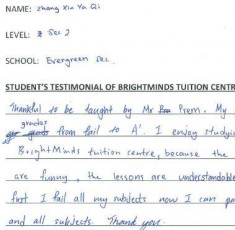 NAME: Zhang Xin Ya Qi
LEVEL: Sec 2
SCHOOL: Evergreen Sec.
STUDENT'S TESTIMONIAL OF BRIGHTMINDS TUITION CENTR
Thankful to be taught by Mr Prem. My
grades from fail to A'. I enjoy studyi
BrightMinds tuition centre, because the
are funny, the lessons are understandable
first I fail all my subjects now I can pa
and all subjects. Thank you.